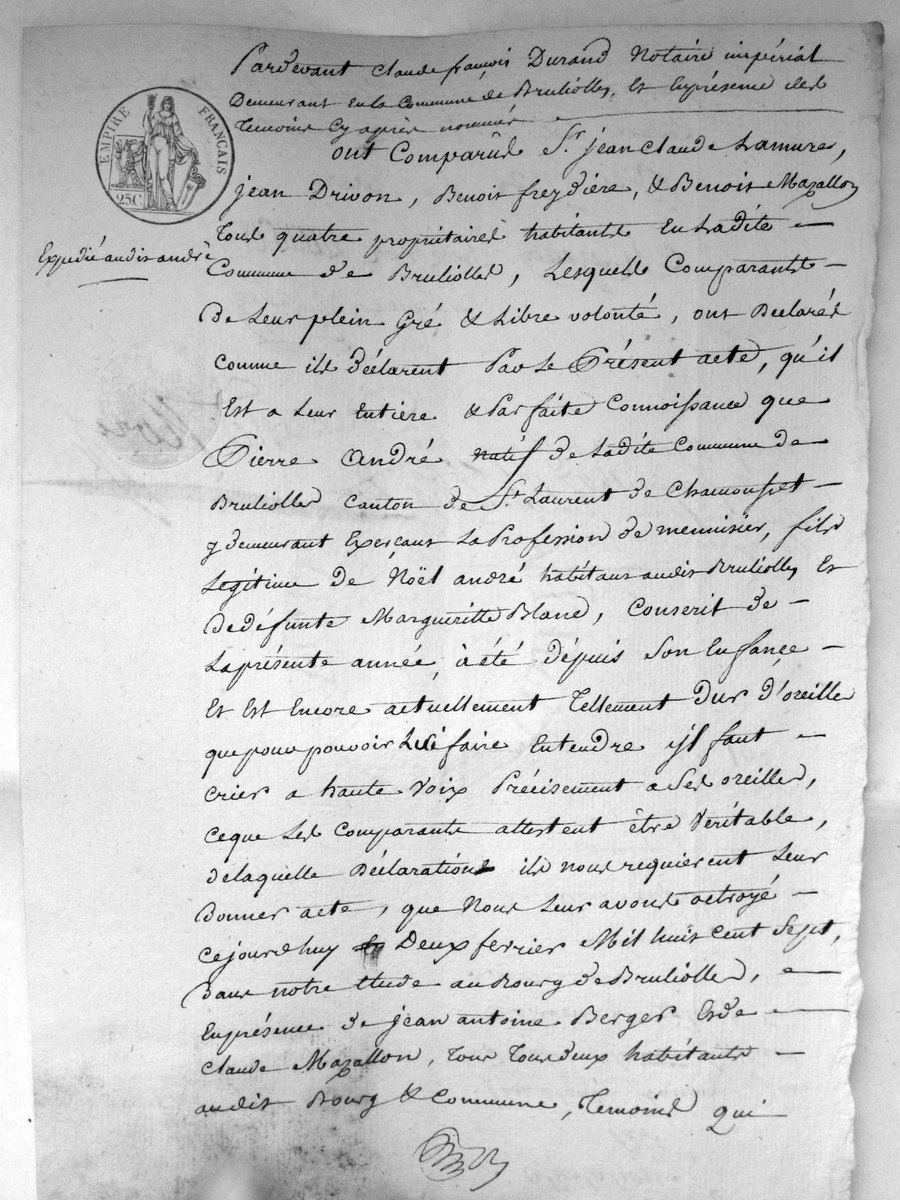 EMPIRE FRANÇAIS
25C.
Expedié audit andré
Pardevant Claude françois Durand Notaire impérial
Demeurant en la Commune de Brulioles, et En présence des
Temoins Cy après nommés
ont Comparûs Sr. jean Claude Lamure,
jean Drivon, Benoit freydière, & Benoit Mazallon
Tous quatre propriétaires habitants En Ladite
Commune de Brulioles, Lesquels Comparants
De Leur plein Gré & Libre volonté, ont Déclarés
comme ils déclarent Par Le Présent acte, qu'il
Est a Leur Entière & Parfaite Connoissance que
Pierre André natif de Ladite Commune de
Brulioles Canton de St. Laurent de Chamousset
y demeurant Exerçant La Profession de menuisier, fils
Legitime de Noël andré habitant audit Brulioles Et
De défunte Margueritte Blanc, Conscrit de
La présente année, à été dépuis Son Enfançe
Et Est Encore actuellement Tellement Dur d'oreille
que pour pouvoir Lui faire Entendre ijl faut
crier a haute voix Précisement a Ses oreilles,
ce que Les Comparants attestent être Véritable,
de laquelle Déclaration ils nous requierent Leur
Donner acte, que Nous Leur avons octroyé
ce jourd'huy Deux fevrier Mil huit cent Sept,
dans notre Etude au Bourg de Brulioles,
En présence de jean antoine Berger Et de
Claude Mazallon, Tous Tous deux habitants
audit Bourg & Commune, Temoins qui